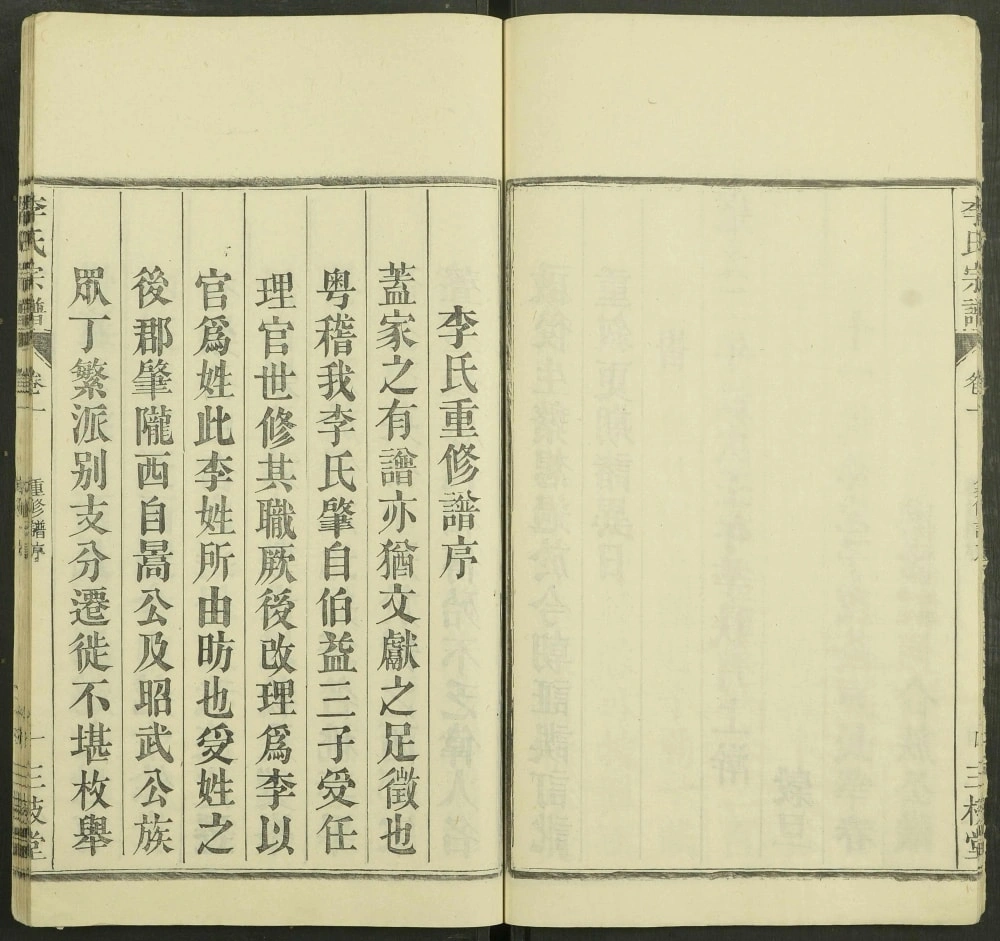 李氏宗譜
卷一
三枝堂
李氏重修譜序
蓋家之有譜亦猶文獻之足徵也
粤稽我李氏肇自伯益三子受任
理官世修其職厥後改理爲李以
官爲姓此李姓所由昉也受姓之
後郡肇隴西自暠公及昭武公族
眾丁繁派别支分遷徙不堪枚舉
李氏宗譜
卷一
重修譜序
一
三枝堂